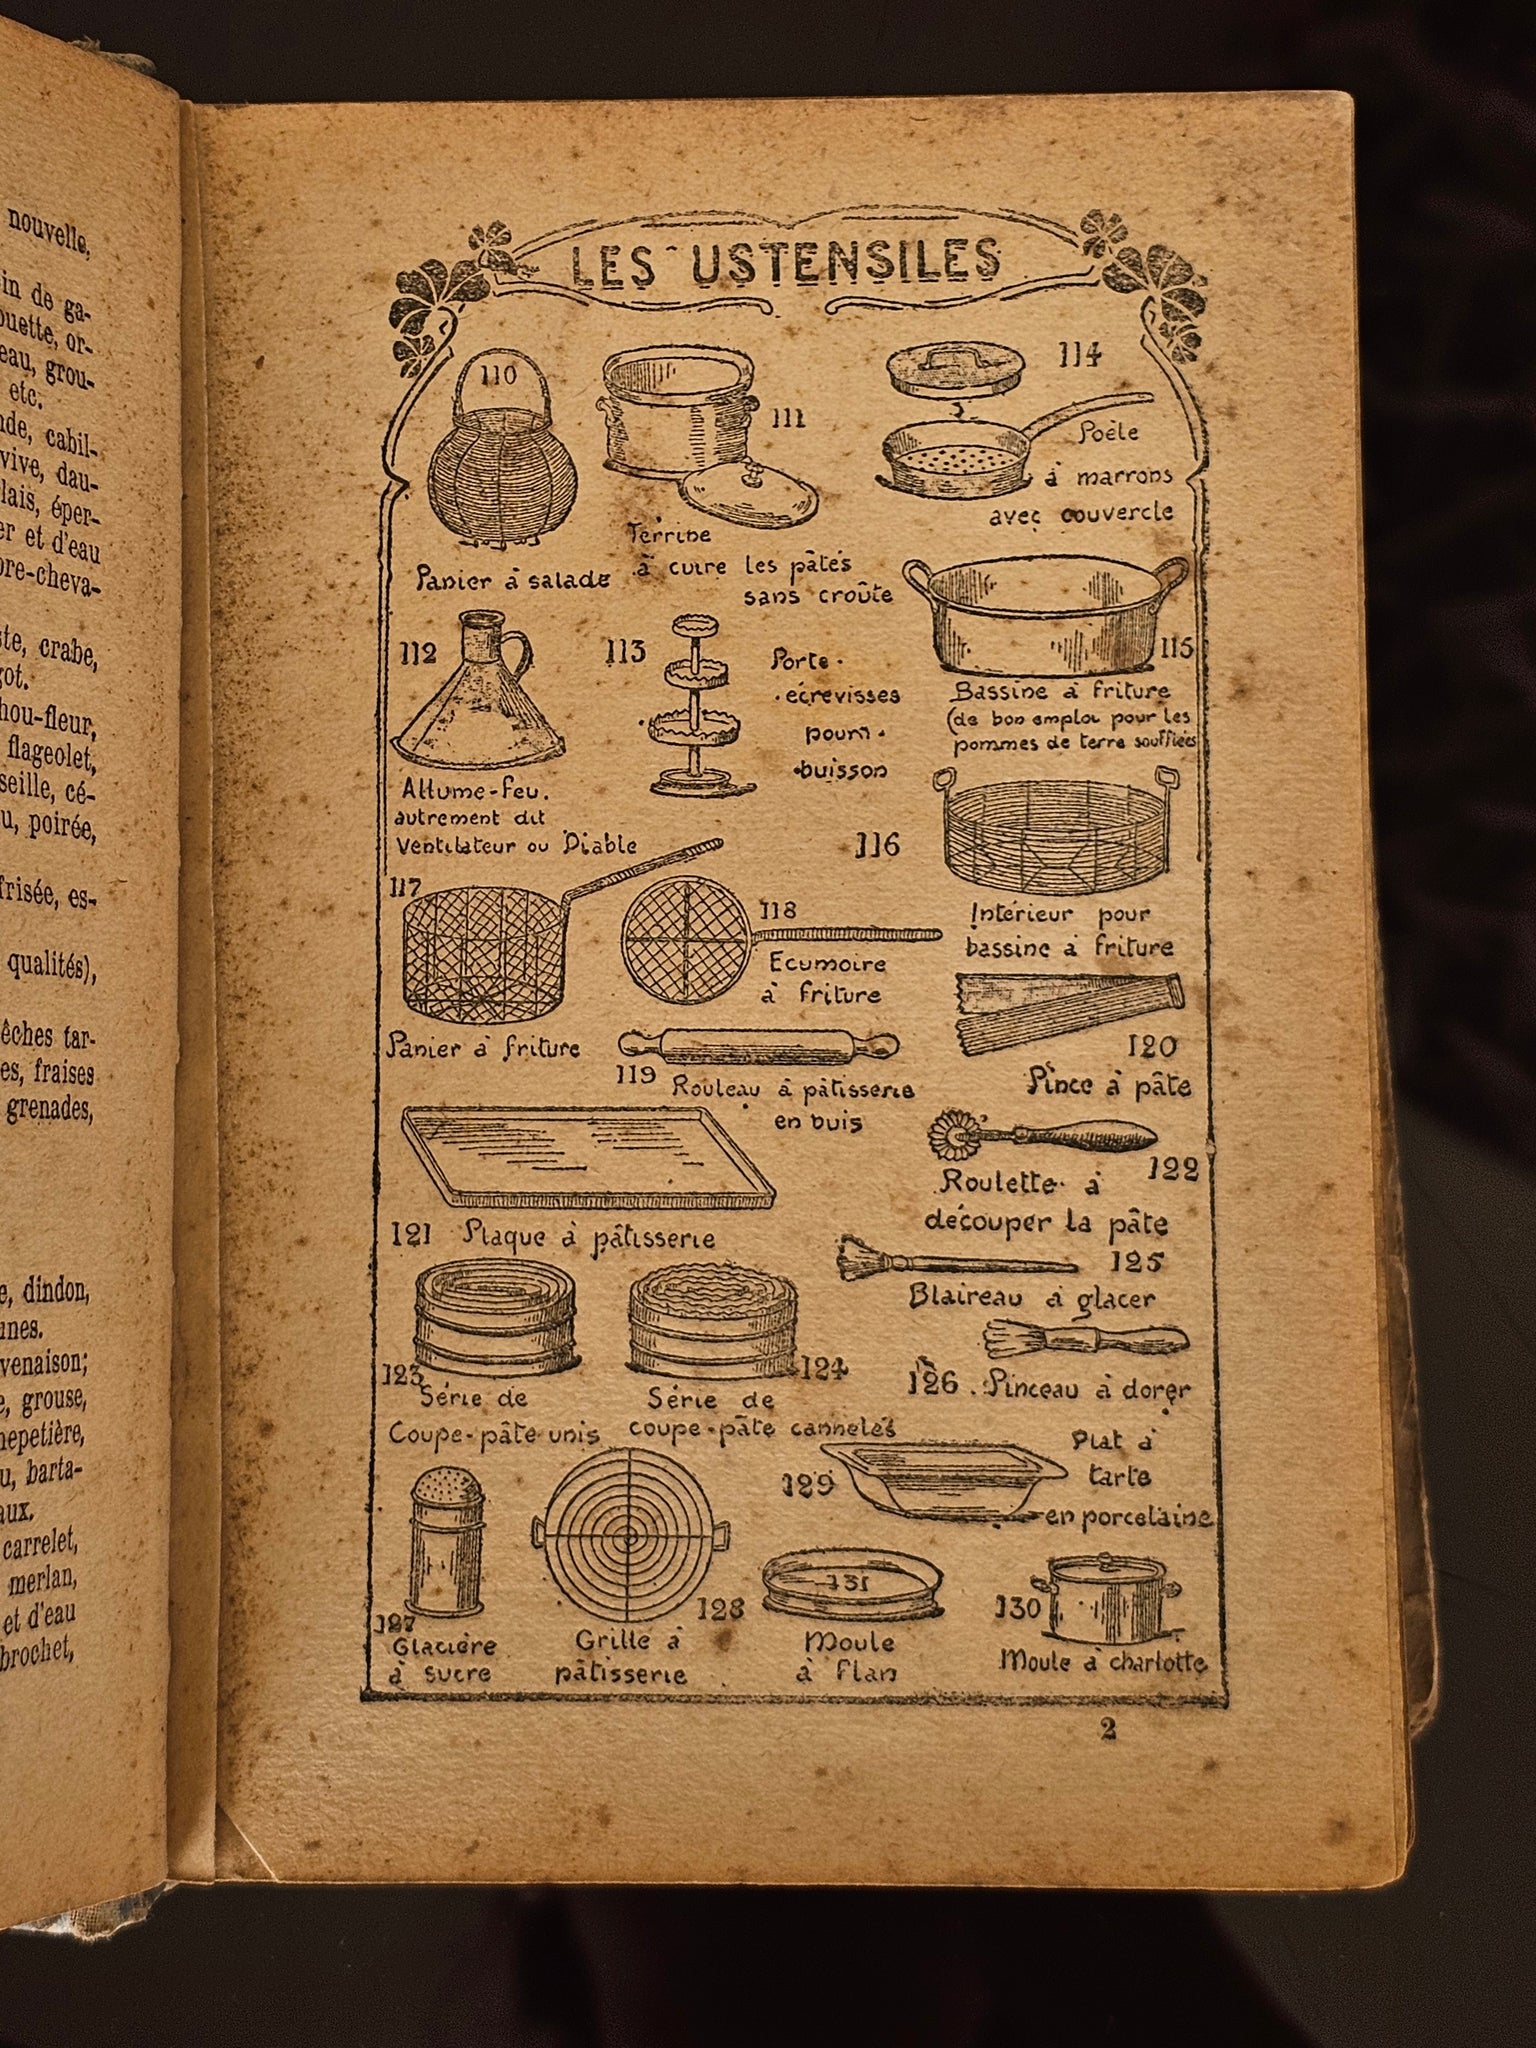 nouvelle,
in de ga-
ouette, or-
eau, grou-
etc.
nde, cabil-
vive, dau-
lais, éper-
er et d'eau
ore-cheva-
ste, crabe,
got.
hou-fleur,
flageolet,
seille, cé-
u, poirée,
frisée, es-
qualités),
êches tar-
es, fraises
grenades,
e, dindon,
unes.
venaison;
e, grouse,
nepetière,
u, barta-
aux.
carrelet,
merlan,
et d'eau
brochet,
LES USTENSILES
110
Panier à salade
111
Terrine
à cuire les pâtés
sans croûte
114
Poéle
à marrons
avec couvercle
112
Allume-feu.
autrement dit
Ventilateur ou Diable
113
Porte-
écrevisses
pour
buisson
115
Bassine à friture
(de bon emploi pour les
pommes de terre soufflées
116
Intérieur pour
bassine à friture
117
Panier à friture
118
Ecumoire
à friture
119
Rouleau à pâtisserie
en buis
120
Pince à pâte
121 Plaque à pâtisserie
122
Roulette à
découper la pâte
123
Série de
Coupe-pâte unis
124
Série de
coupe-pâte cannelés
125
Blaireau à glacer
126. Pinceau à dorer
127
Glacière
à sucre
128
Grille à
pâtisserie
129
Plat à
tarte
en porcelaine
131
Moule
à flan
130
Moule à charlotte
2